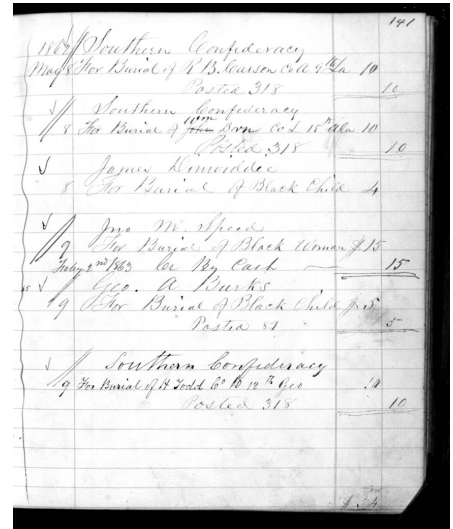 141
1862 Southern Confederacy
May 8 For Burial of R B. Carson Co A 9th La 10
Posted 318 10
Southern Confederacy
8 For Burial of Wm Dorn Co L 15th Ala 10
Posted 318 10
James Dinwiddie
8 For Burial of Black Child 4
Jno M Speed
9 For Burial of Black Woman $ 15
Feby 2nd 1863 Cr By Cash 15
Geo. A Burks
9 For Burial of Black Child $ 5
Posted 81 5
Southern Confederacy
9 For Burial of H Todd Co 12th Geo 10
Posted 318 10
$ 54